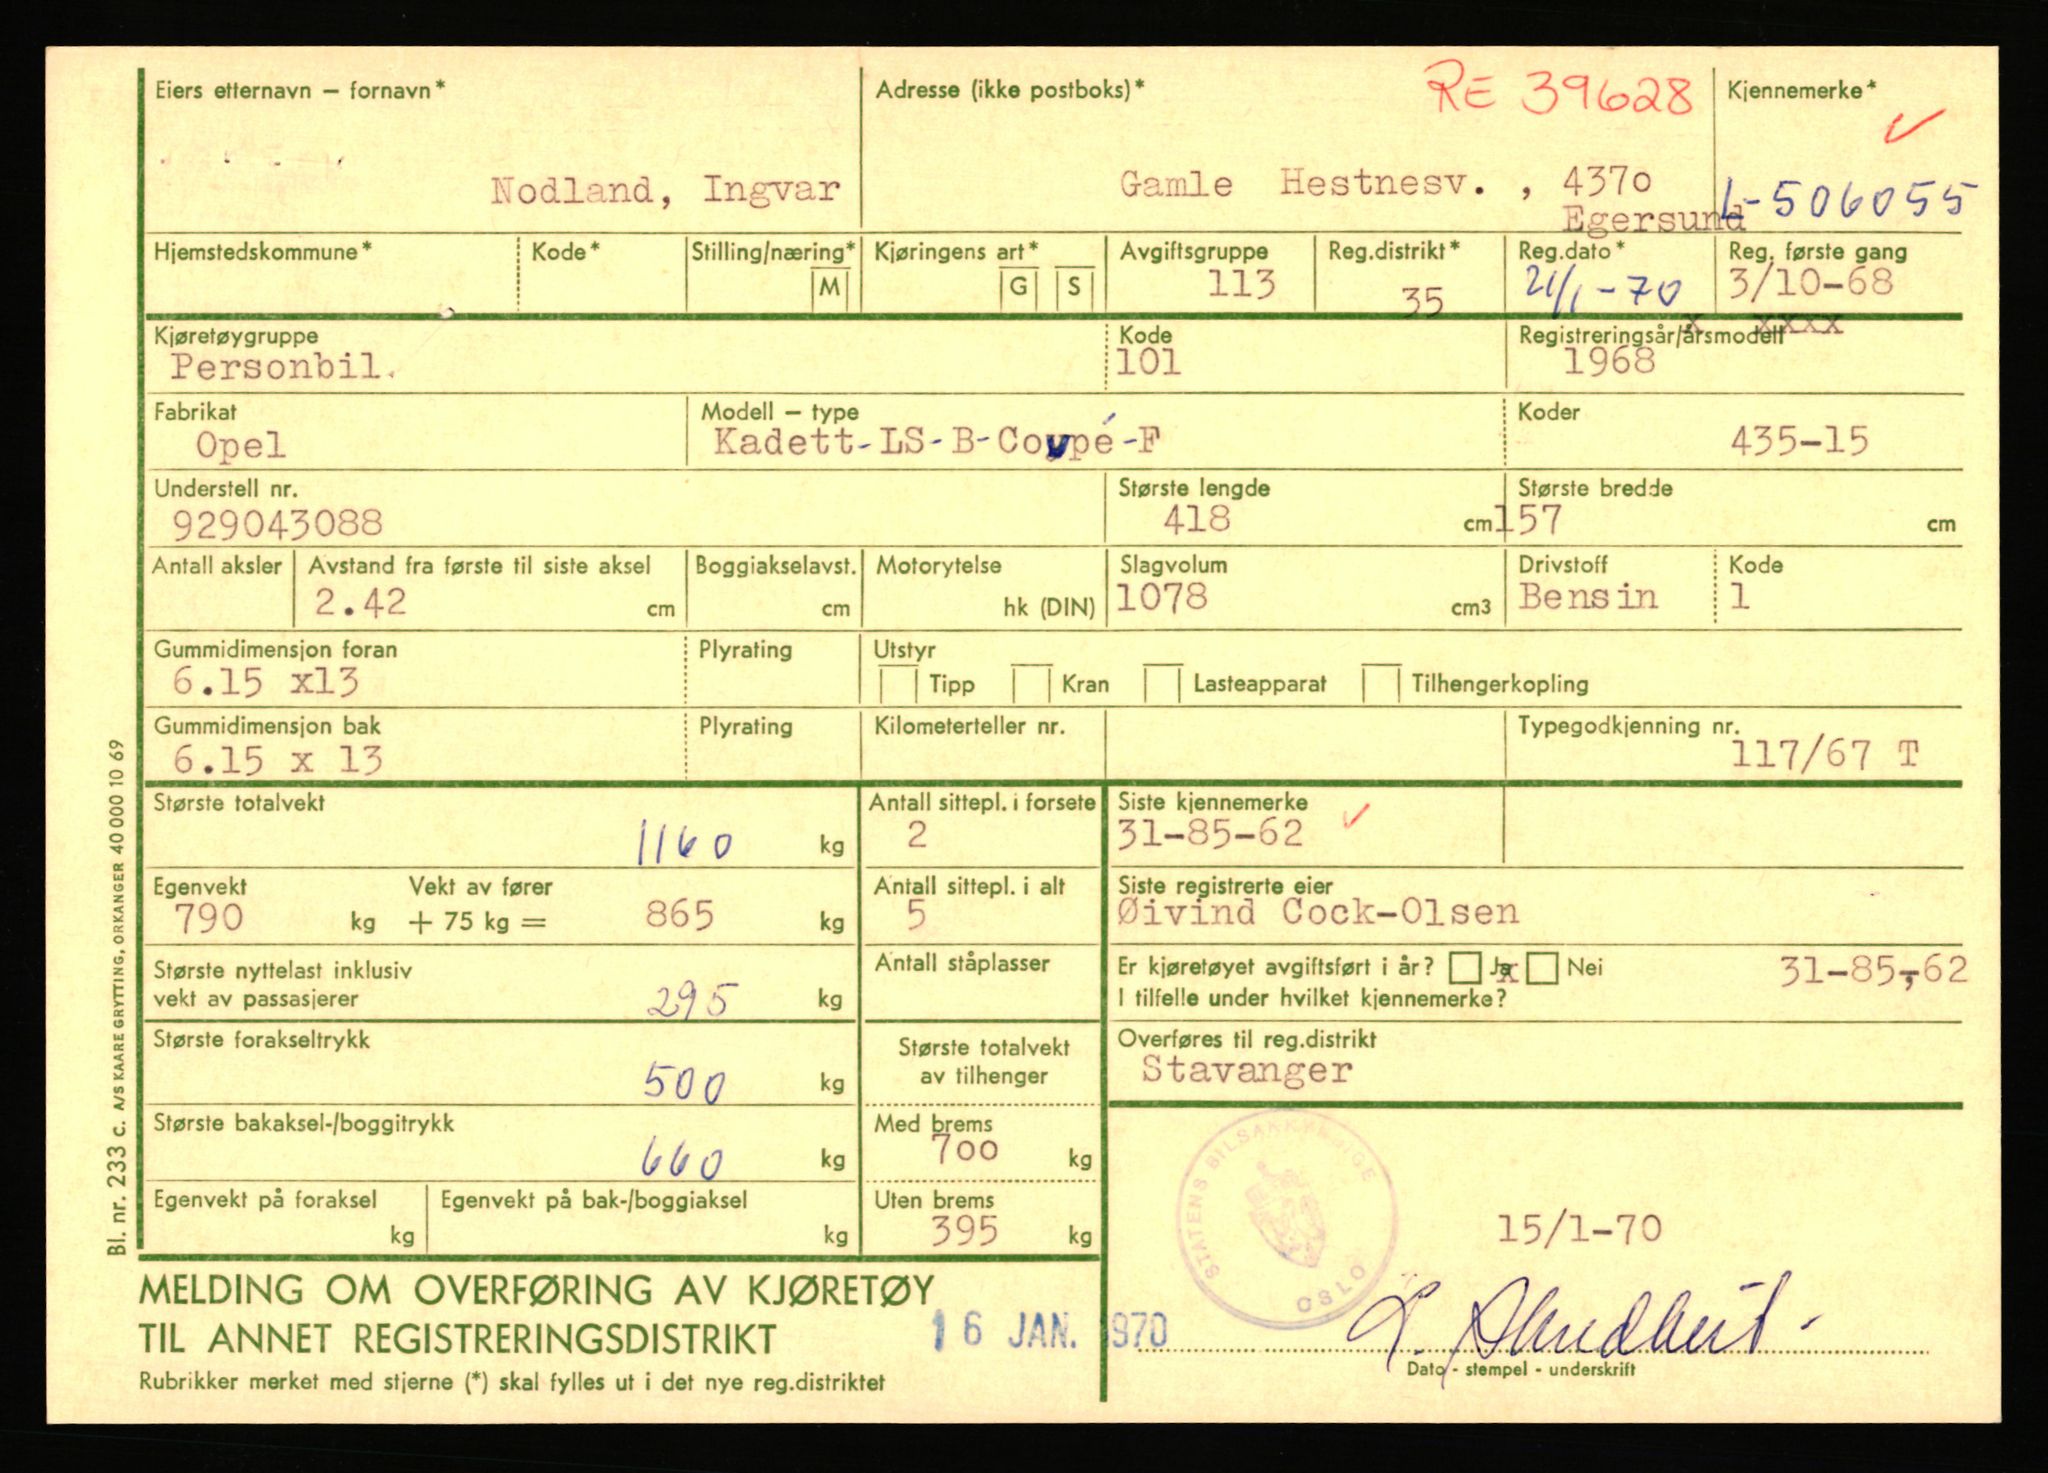 Eiers etternavn – fornavn*
Nodland, Ingvar
Adresse (ikke postboks)*
RE 39628
Gamle Hestnesv. , 4370
Egersund
Kjennemerke*
L-506055
Hjemstedskommune*
Kode*
Stilling/næring*
M
Kjøringens art*
G S
Avgiftsgruppe
113
Reg.distrikt*
35
Reg.dato*
21/1-70
Reg. første gang
3/10-68
Kjøretøygruppe
Personbil.
Kode
101
x xxxx
Registreringsår/årsmodell
1968
Fabrikat
Opel
Modell – type
Kadett-LS-B-Coupé-F
Koder
435-15
Understell nr.
929043088
Største lengde
418 cm
Største bredde
157 cm
Antall aksler
Avstand fra første til siste aksel
2.42 cm
Boggiakselavst.
cm
Motorytelse
hk (DIN)
Slagvolum
1078 cm3
Drivstoff
Bensin
Kode
1
Gummidimensjon foran
6.15 x13
Plyrating
Utstyr
Tipp Kran Lasteapparat Tilhengerkopling
Gummidimensjon bak
6.15 x 13
Plyrating
Kilometerteller nr.
Typegodkjenning nr.
117/67 T
Største totalvekt
1160 kg
Antall sittepl. i forsete
2
Siste kjennemerke
31-85-62
Egenvekt
790 kg
Vekt av fører
+ 75 kg = 865 kg
Antall sittepl. i alt
5
Siste registrerte eier
Øivind Cock-Olsen
Største nyttelast inklusiv
vekt av passasjerer
295 kg
Antall ståplasser
Er kjøretøyet avgiftsført i år? Ja x Nei
31-85-,62
I tilfelle under hvilket kjennemerke?
Største forakseltrykk
500 kg
Største totalvekt
av tilhenger
Overføres til reg.distrikt
Stavanger
Største bakaksel-/boggitrykk
660 kg
Med brems
700 kg
Egenvekt på foraksel
kg
Egenvekt på bak-/boggiaksel
kg
Uten brems
395 kg
STATENS BILSAKKYNDIGE
OSLO
15/1-70
MELDING OM OVERFØRING AV KJØRETØY
TIL ANNET REGISTRERINGSDISTRIKT
16 JAN. 1970
Dato - stempel - underskrift
Rubrikker merket med stjerne (*) skal fylles ut i det nye reg.distriktet
Bl. nr. 233 c. A/S KAARE GRYTTING, ORKANGER 40 000 10 69